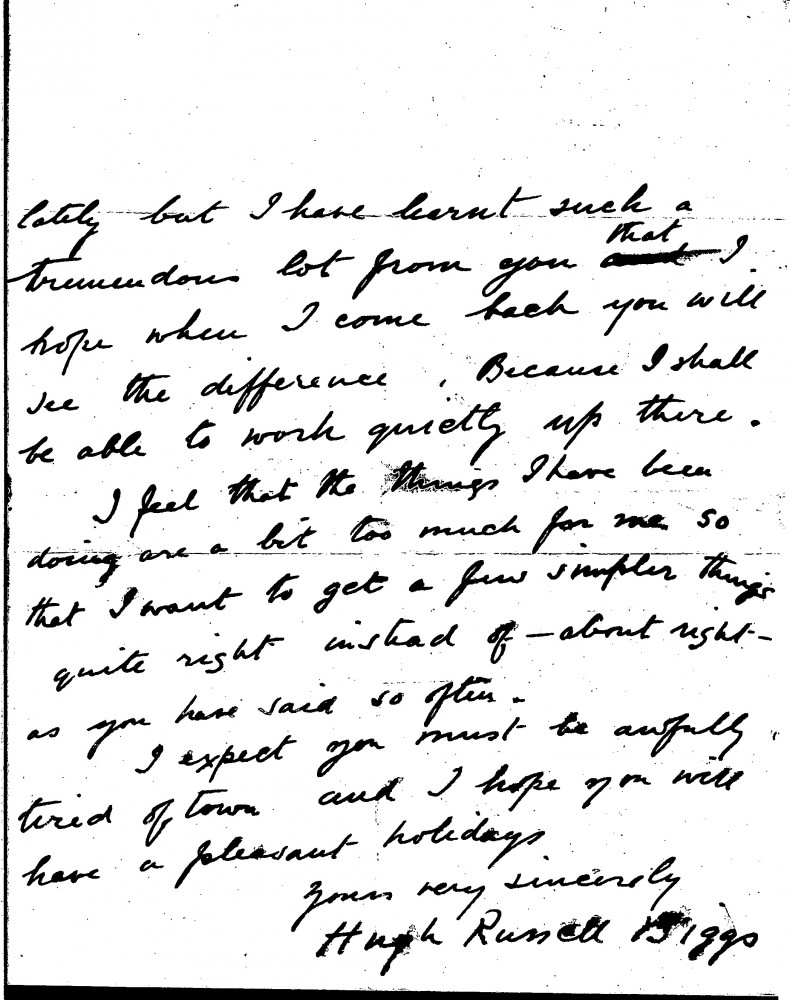 lately but I have learnt such a
tremendous lot from you that I
hope when I come back you will
see the difference. Because I shall
be able to work quietly up there.
I feel that the things I have been
doing are a bit too much for me so
that I want to get a few simpler things
quite right instead of - about right -
as you have said so often.
I expect you must be awfully
tired of town and I hope you will
have a pleasant holidays
Yours very sincerely
Hugh Russell Biggs